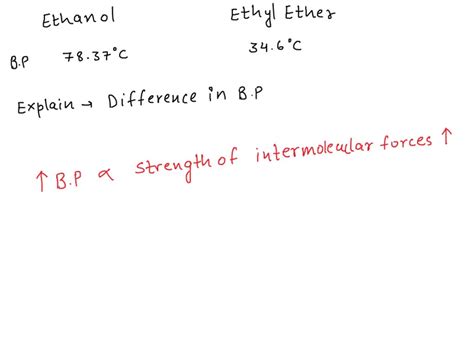 Ethanol Ethyl Ether
B.P 78.37°C 34.6°C
Explain → Difference in B.P
↑ B.P ∝ strength of intermolecular forces ↑